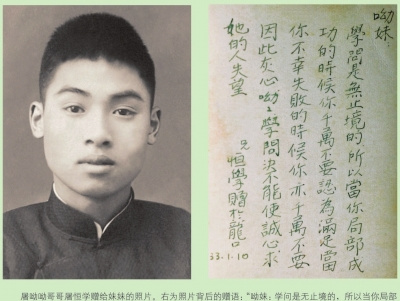 呦妹
學問是無止境的所以當你局部成
功的時候你千萬不要認為滿足當
你不幸失敗的時候你亦千萬不要
因此灰心呦々學問決不能使誠心求
她的人失望
兄 恒學贈於龍口
33.1.10
屠呦呦哥哥屠恒学赠给妹妹的照片，右为照片背后的赠语：“呦妹：学问是无止境的，所以当你局部